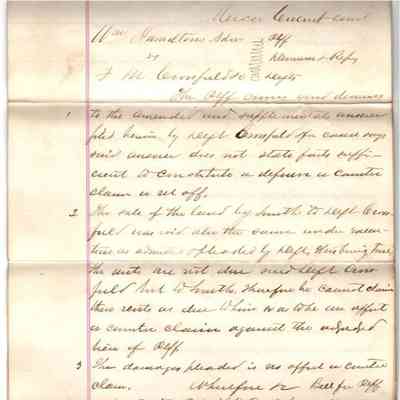 Mercer Circuit Court
Wm Hamiltons Admr Plff
vs Demurrer & Reply
F M Cornfield &c Defts
The Plff comes and demurs
1 to the amended and supplemental answer
filed herein by Deft Cornfield for cause says
said answer does not state facts suffi-
cient to constitute a defense or counter
claim or set off.
2 The sale of the land by Smith to Deft Corn-
field was void also the same under
as pleaded by Deft, this being true
the rents are not due said Deft Corn
field but to Smith, therefore he cannot claim
them rents as due to him as to be an offset
or counter claim against the
lien of Plff
3 The damages pleaded is no offset or counter
claim. Wherefore &c Bell for Plff